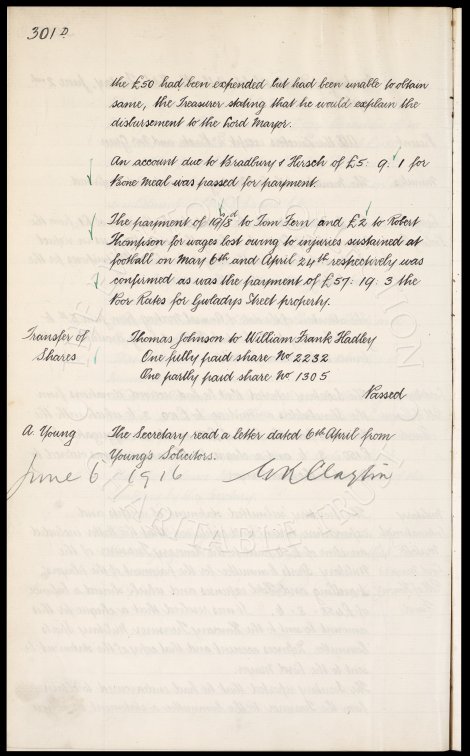 301D
the £50 had been expended but had been unable to obtain
same, the Treasurer stating that he would explain the
disbursement to the Lord Mayor.
An account due to Bradbury & Hirsch of £5: 9: 1 for
Bone Meal was passed for payment.
The payment of 19/3d to Tom Fern and £2 to Robert
Thompson for wages lost owing to injuries sustained at
football on May 6th and April 24th respectively was
confirmed as was the payment of £57: 19: 3 the
Poor Rates for Gwladys Street property.
Transfer of Shares
Thomas Johnson to William Frank Hadley
One fully paid share No 2232
One partly paid share No 1305
Passed
A. Young
The Secretary read a letter dated 6th April from
Young's Solicitors.
June 6 1916 W R Clayton